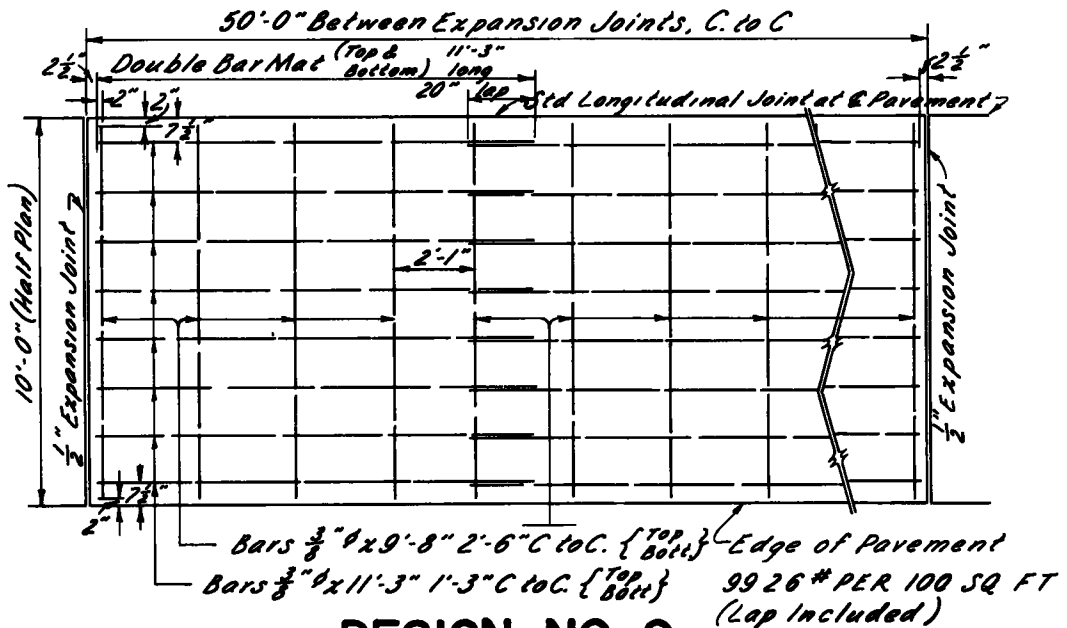 50'-0" Between Expansion Joints, C. to C
2½" Double Bar Mat (Top & Bottom) 11'-3" long 2½"
20" lap
2" 2" Std Longitudinal Joint at ℄ Pavement
7½"
10'-0" (Half Plan)
½" Expansion Joint
2'-1"
½" Expansion Joint
7½"
2"
Bars ⅜"φ x 9'-8" 2'-6" C to C. {Top Bott} Edge of Pavement
Bars ⅜"φ x 11'-3" 1'-3" C to C. {Top Bott} 99 26 # PER 100 SQ FT
(Lap Included)